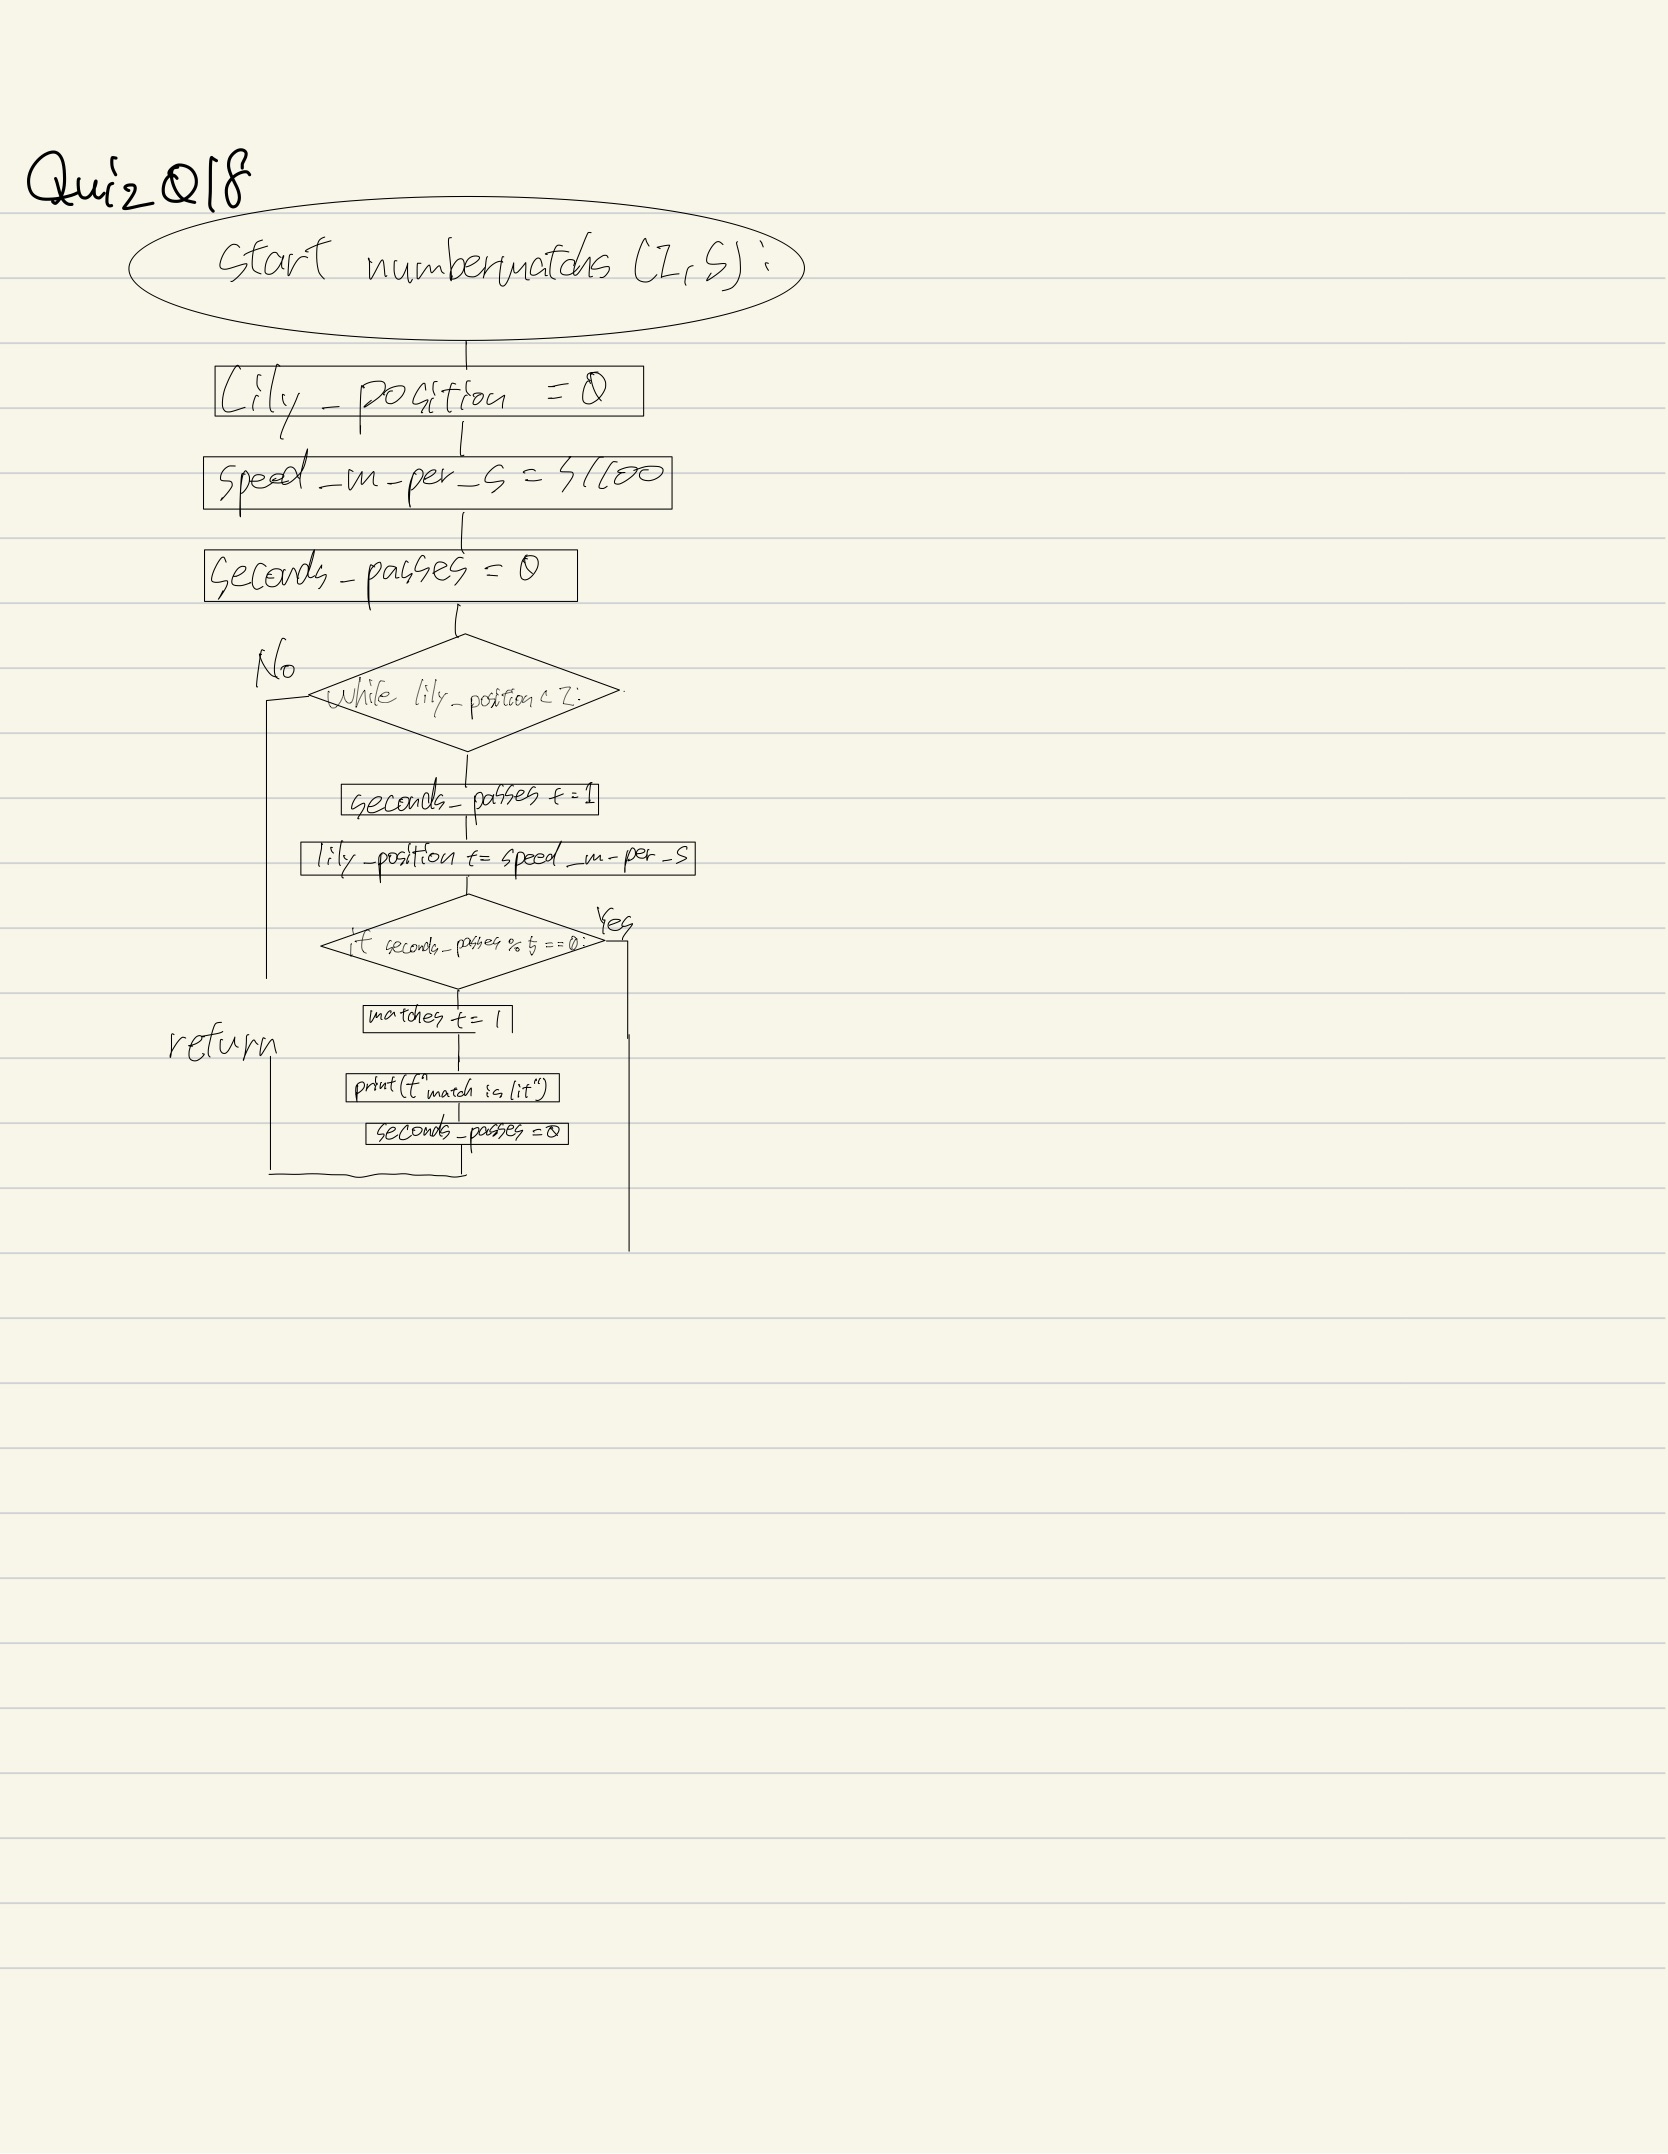 Quiz Q18
start numbermatchs (Z, S):
Lily_position = 0
speed_m_per_s = S/100
seconds_passes = 0
No
while lily_position < Z:
seconds_passes += 1
lily_position += speed_m_per_s
Yes
if seconds_passes % 5 == 0:
matches += 1
return
print(f"match is lit")
seconds_passes = 0